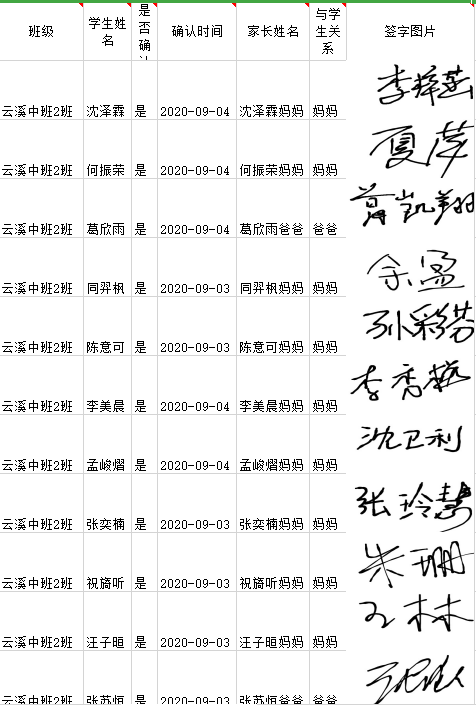 班级 学生姓名 是否确认 确认时间 家长姓名 与学生关系 签字图片
云溪中班2班 沈泽霖 是 2020-09-04 沈泽霖妈妈 妈妈
云溪中班2班 何振荣 是 2020-09-04 何振荣妈妈 妈妈 夏萍
云溪中班2班 葛欣雨 是 2020-09-04 葛欣雨爸爸 爸爸 葛凯翔
云溪中班2班 同羿枫 是 2020-09-03 同羿枫妈妈 妈妈 余孟
云溪中班2班 陈意可 是 2020-09-03 陈意可妈妈 妈妈 孙彩芬
云溪中班2班 李美晨 是 2020-09-04 李美晨妈妈 妈妈 李秀艳
云溪中班2班 孟峻熠 是 2020-09-04 孟峻熠妈妈 妈妈 沈卫利
云溪中班2班 张奕楠 是 2020-09-03 张奕楠妈妈 妈妈 张玲慧
云溪中班2班 祝旖听 是 2020-09-03 祝旖听妈妈 妈妈 朱珊
云溪中班2班 汪子晅 是 2020-09-03 汪子晅妈妈 妈妈 王林林
云溪中班2班 张苏恒 是 2020-09-03 张苏恒爸爸 爸爸